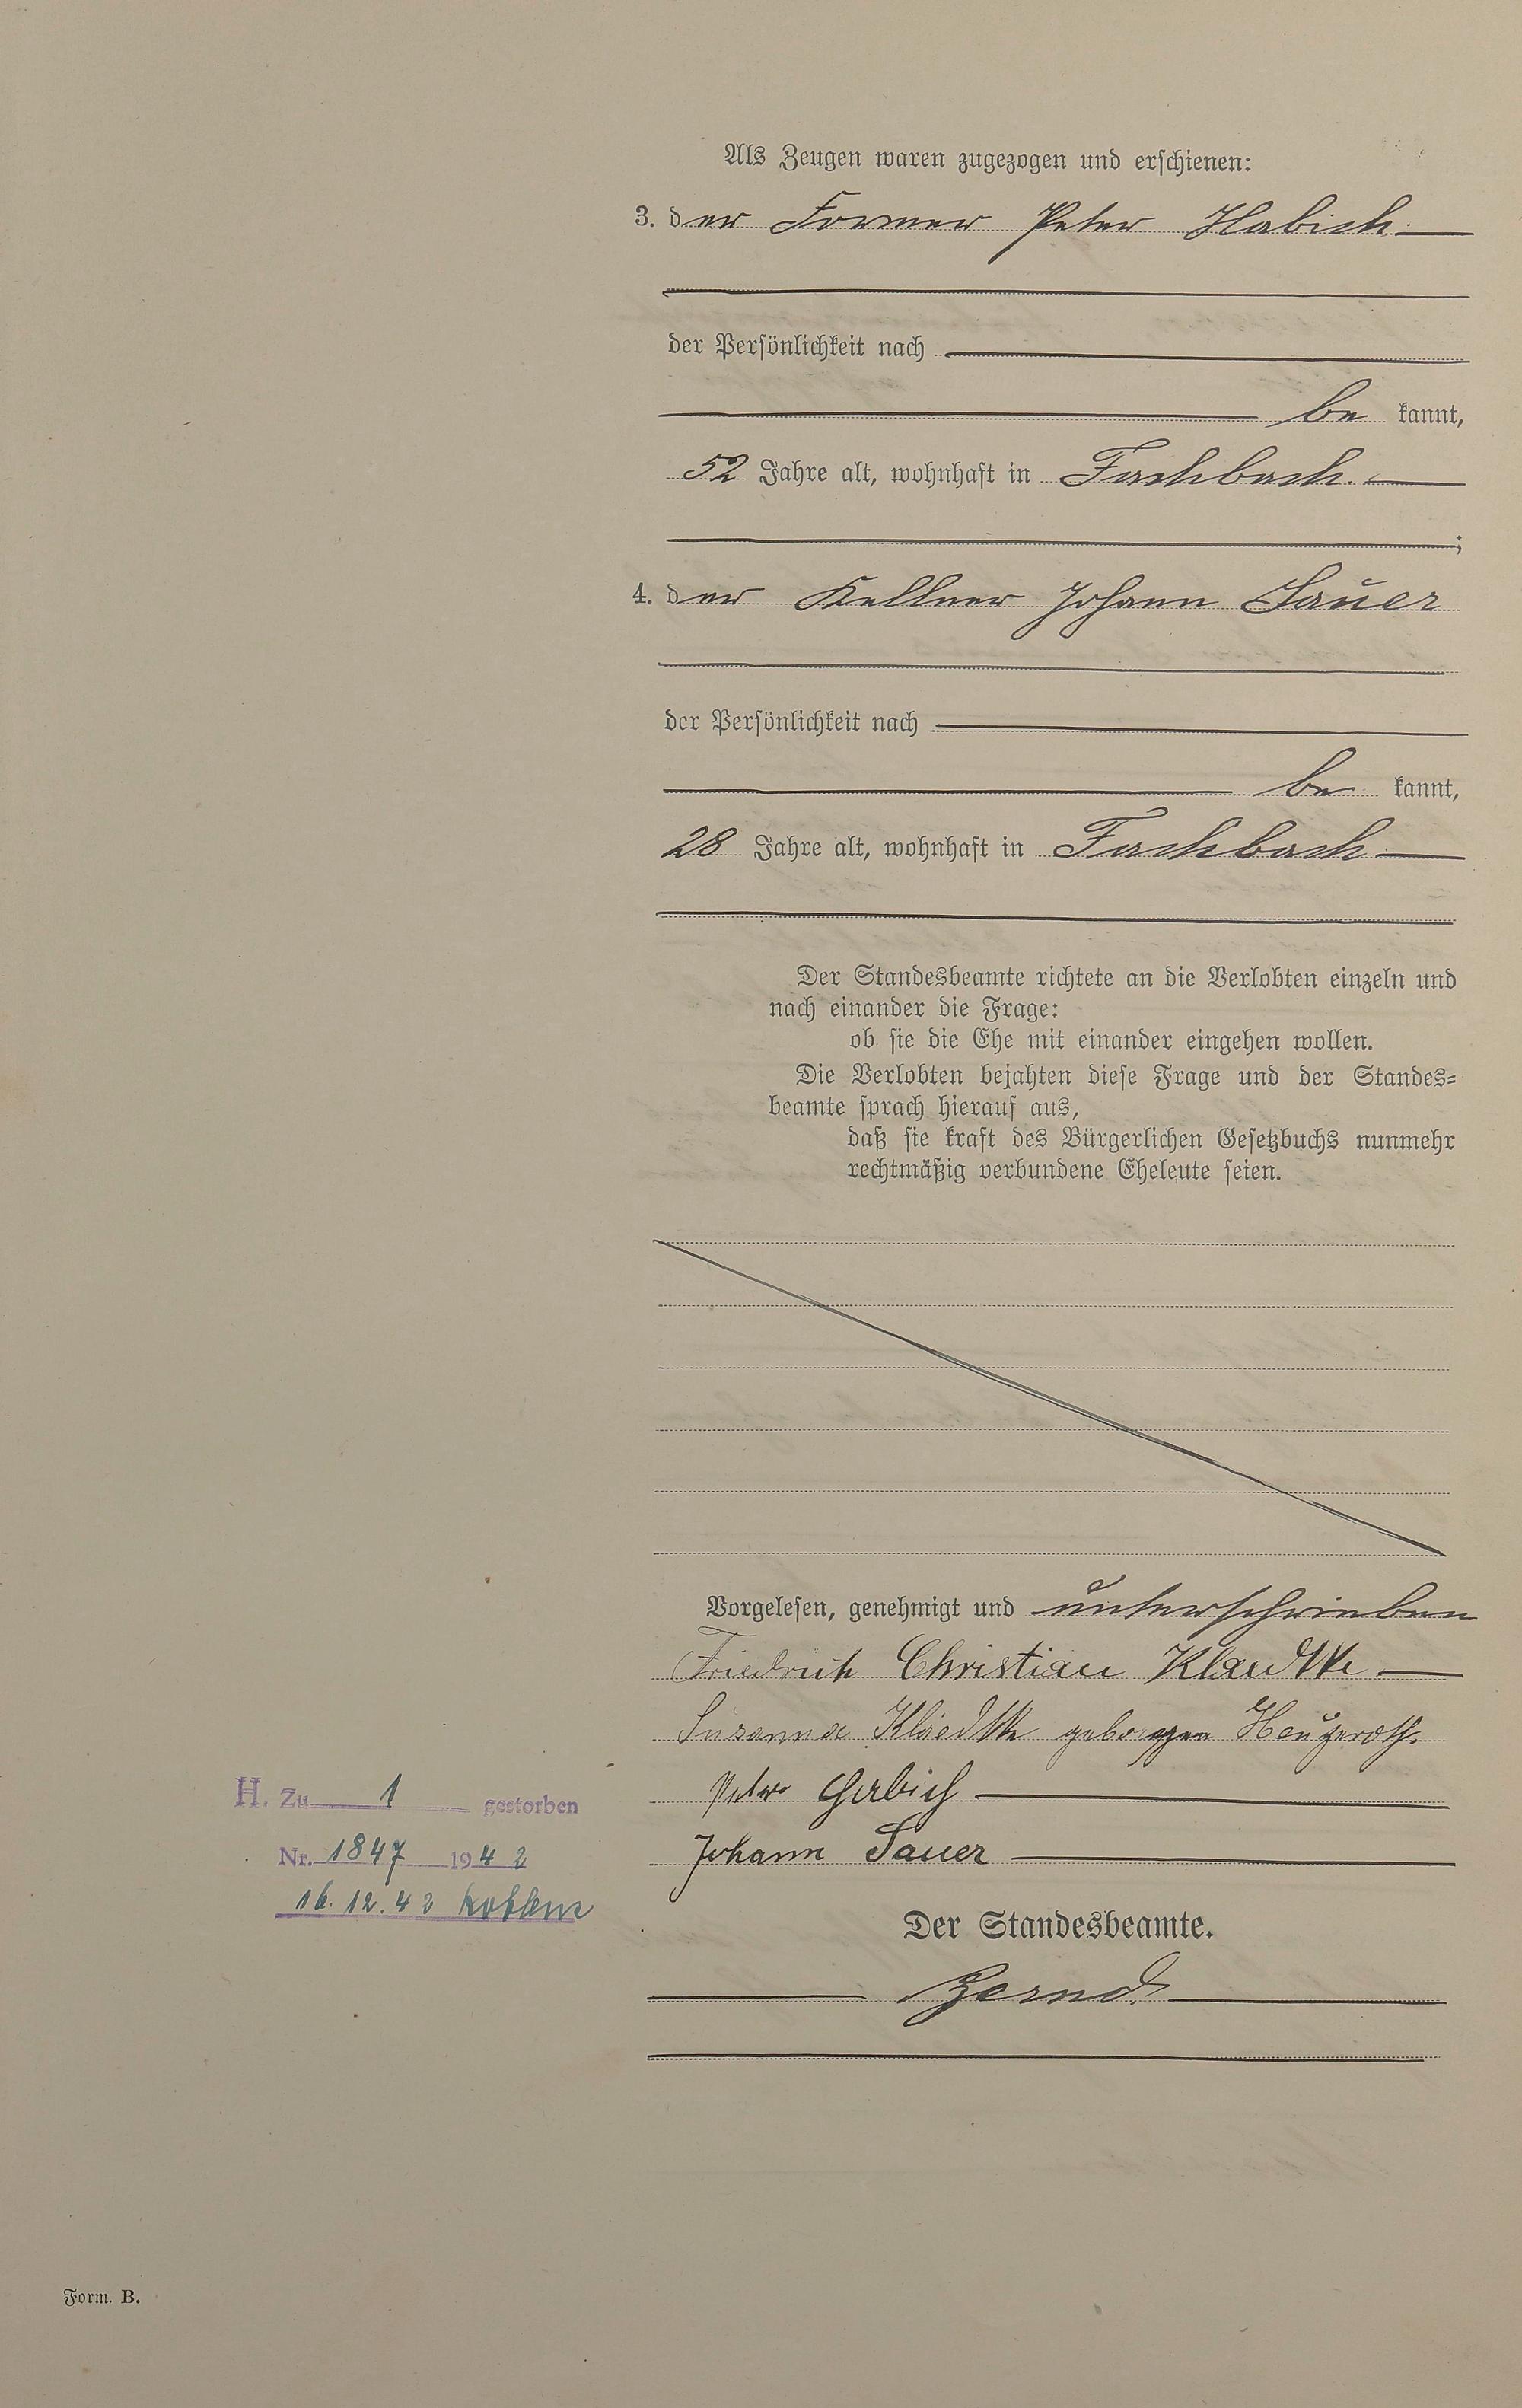 Als Zeugen waren zugezogen und erschienen:
3. der Former Peter Habich
der Persönlichkeit nach
be kannt,
52 Jahre alt, wohnhaft in Fachbach.
;
4. der Kellner Johann Sauer
der Persönlichkeit nach
be kannt,
28 Jahre alt, wohnhaft in Fachbach
Der Standesbeamte richtete an die Verlobten einzeln und
nach einander die Frage:
ob sie die Ehe mit einander eingehen wollen.
Die Verlobten bejahten diese Frage und der Standes=
beamte sprach hierauf aus,
daß sie kraft des Bürgerlichen Gesetzbuchs nunmehr
rechtmäßig verbundene Eheleute seien.
Vorgelesen, genehmigt und unterschrieben
Friedrich Christian Klaedtke
Susanna Klaedtke geborgen Heuzeroth.
Peter Habich
Johann Sauer
H. Zu 1 gestorben
Nr. 1847 1942
16.12.42 Koblenz
Der Standesbeamte.
Form. B.